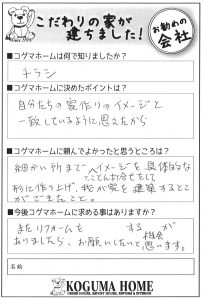 こだわりの家が
建ちました!
お勧めの
会社
■コグマホームは何で知りましたか?
チラシ
■コグマホームに決めたポイントは?
自分たちの家作りのイメージと
一致しているように思えたから
■コグマホームに頼んでよかったと思うところは?
細かい所までイメージを具体的な
とことん打合せをして
形に作り上げ、我が家を建築すること
ができたこと。
■今後コグマホームに求める事はありますか?
またリフォームを する が
ありましたら、お願いしたいと思います。
機会
名前
KOGUMA HOME